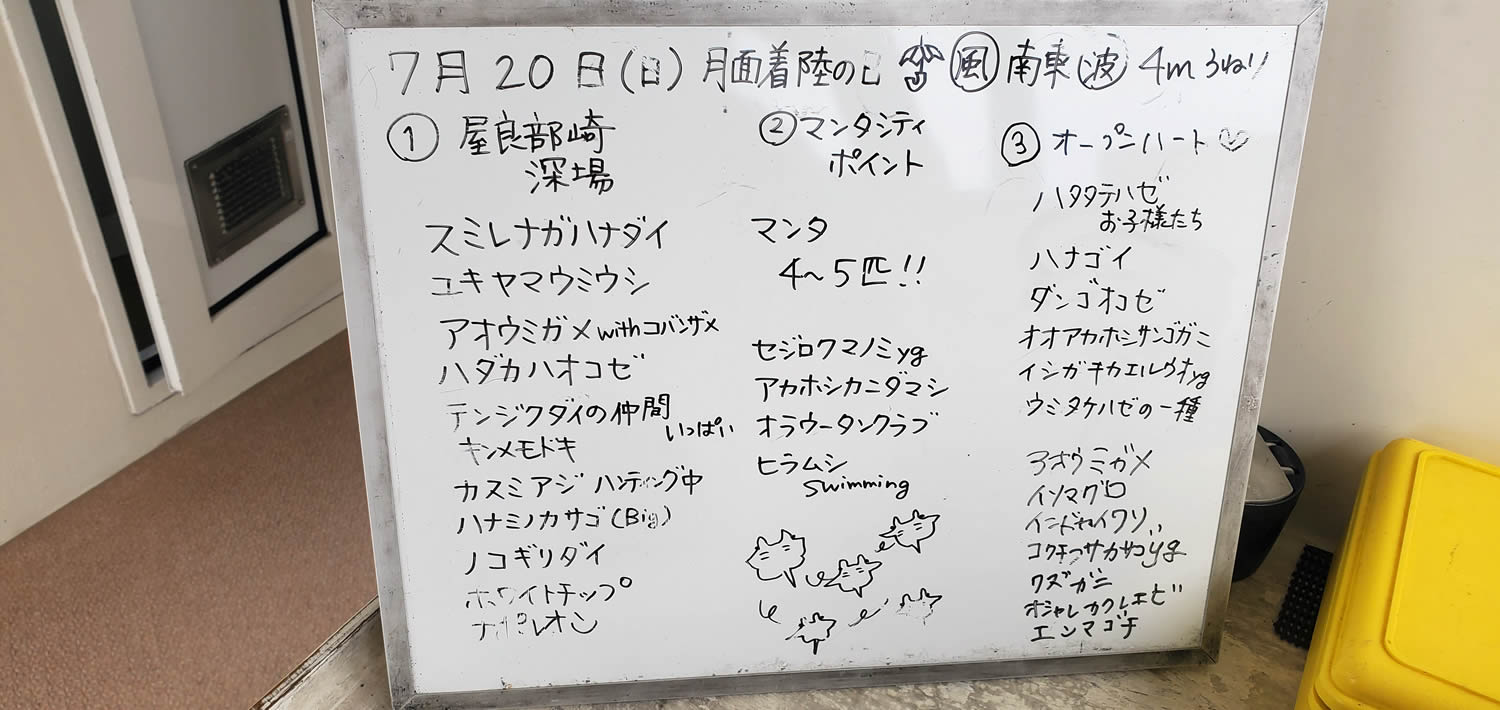 7月20日(日) 月面着陸の日 風 南東 波 4m うねり
① 屋良部崎
深場
スミレナガハナダイ
ユキヤマウミウシ
アオウミガメ with コバンザメ
ハダカハオコゼ
テンジクダイの仲間
いっぱい
キンメモドキ
カスミアジ ハンティング中
ハナミノカサゴ (Big)
ノコギリダイ
ホワイトチップ
ナポレオン
② マンタシティ
ポイント
マンタ
4~5匹!!
セジロクマノミyg
アカホシカニダマシ
オラウータンクラブ
ヒラムシ
swimming
③ オープンハート♡
ハタタテハゼ
お子様たち
ハナゴイ
ダンゴオコゼ
オオアカホシサンゴガニ
イシガキカエルウオyg
ウミタケハゼの一種
アオウミガメ
イソマグロ
クズガニ
オシャレカクレエビ
エンマゴチ